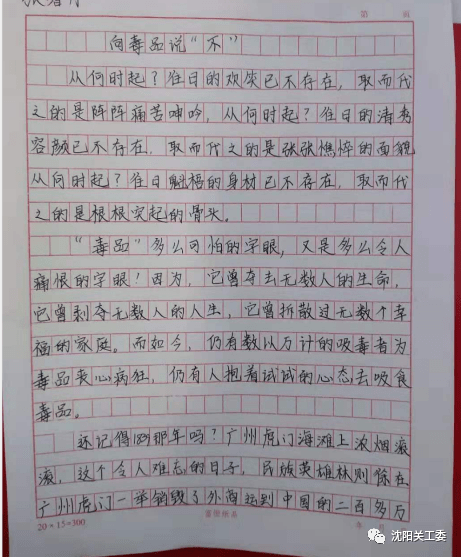 第 页
向毒品说“不”
从何时起？往日的欢笑已不存在，取而代
之的是阵阵痛苦呻吟，从何时起？往日的清秀
容颜已不存在，取而代之的是张张憔悴的面貌
从何时起？往日魁梧的身材已不存在，取而代
之的是根根突起的骨头。
“毒品”多么可怕的字眼，又是多么令人
痛恨的字眼！因为，它曾夺去无数人的生命，
它曾剥夺无数人的人生，它曾拆散过无数个幸
福的家庭。而如今，仍有数以万计的吸毒者为
毒品丧心病狂，仍有人抱着试试的心态去吸食
毒品。
还记得1839那年吗？广州虎门海滩上浓烟滚
滚，这个令人难忘的日子，民族英雄林则徐在
广州虎门一举销毁了外商运到中国的二百多万
20×15=300
沈阳关工委